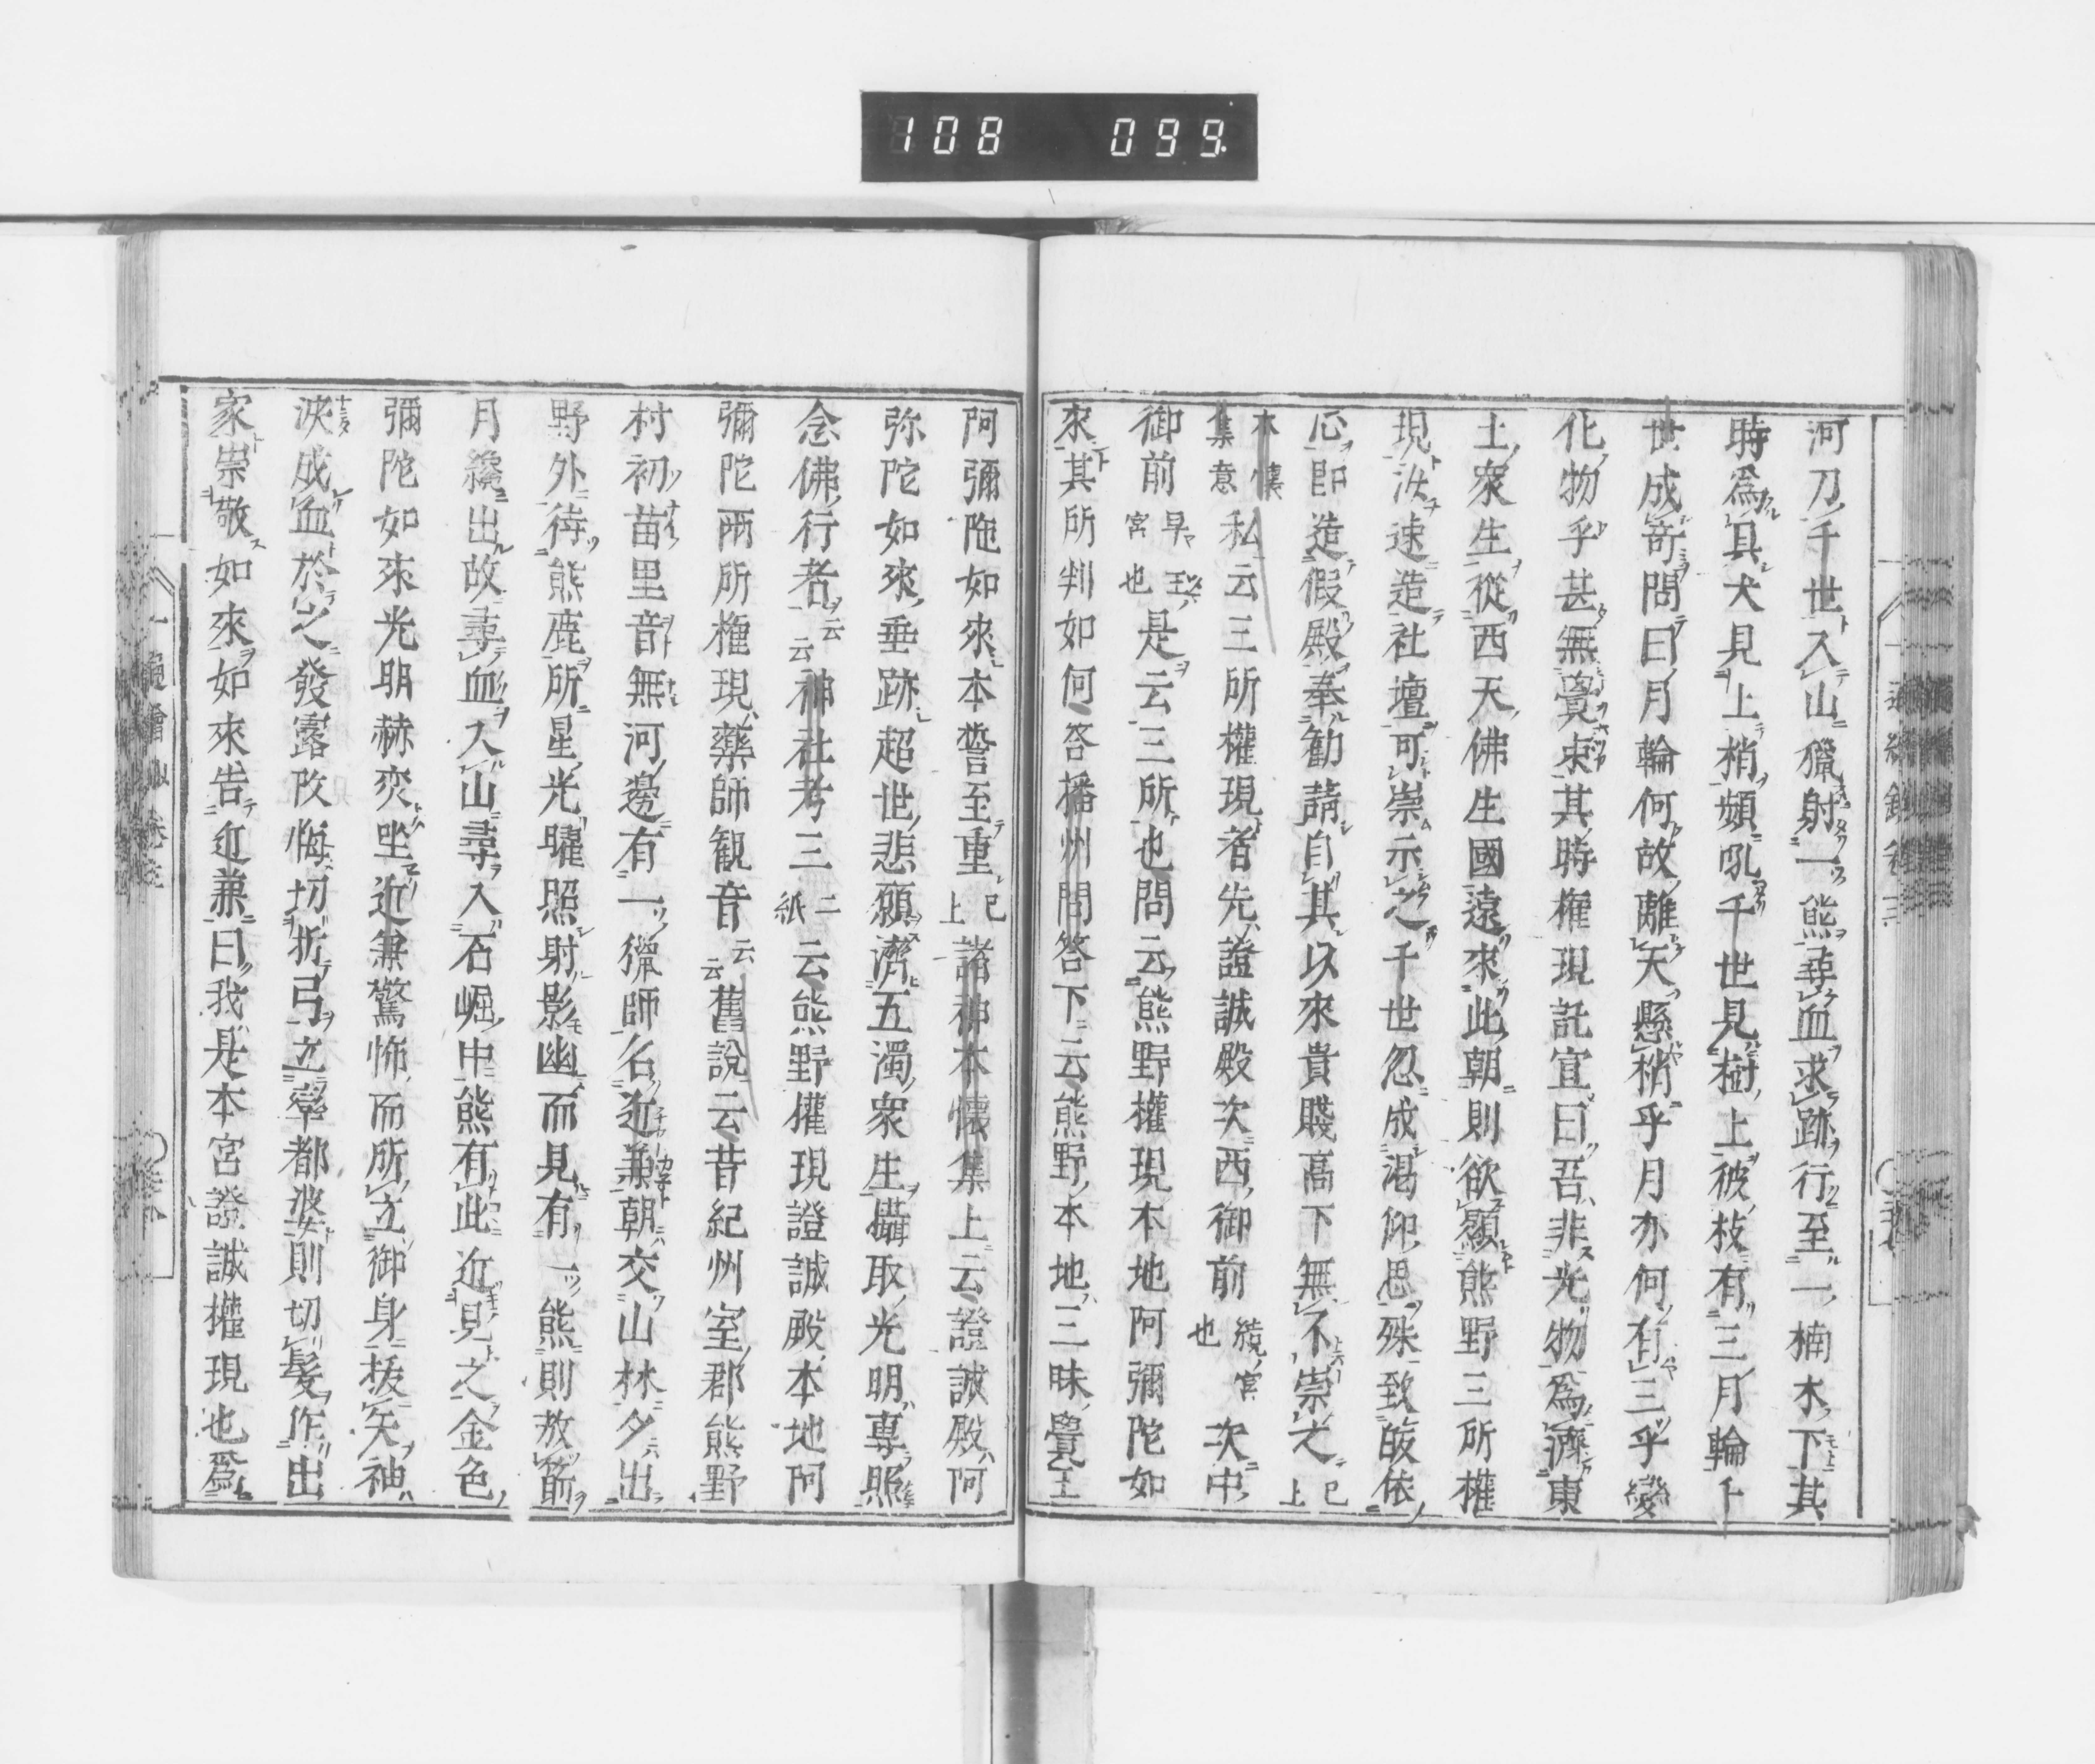 108 099
河刀千世入山獵射一熊尋血求跡行至一楠木下其
時爲其犬見上梢頻吼千世見樹上彼枝有三月輪千
世成奇問曰月輪何故離天懸梢乎月亦何有三乎變
化物乎甚無覺束其時權現託宣曰吾非光物爲濟東
土衆生從西天佛生國遠來此朝則欲顯熊野三所權
現汝速造社壇可崇示之千世忽成渇仰思殊致皈依
心即造假殿奉勧請自其以來貴賤高下無不崇之已上
本懷集意私云三所權現者先證誠殿次西御前結宮也次中
御前早玉宮也是云三所也問云熊野權現本地阿彌陀如
來其所判如何答播州問答下云熊野本地三昧覺王
阿彌陁如來本誓至重已上諸神本懷集上云證誠殿阿
弥陀如來垂跡超世悲願濟五濁衆生攝取光明專照
念佛行者云云神社考三二紙云熊野權現證誠殿本地阿
彌陀兩所権現藥師観音云云舊說云昔紀州室郡熊野
村初苗里音無河邊有一獵師名近兼朝交山林夕出
野外待熊鹿所星光曜照射影幽而見有一熊則放箭
月纔出故尋血入山尋入石崛中熊有此近見之金色
彌陀如來光明赫奕坐近兼驚怖而所立御身抜矢袖
淚成血於之發露改悔切折弓立率都婆則切髮作出
家崇敬如來如來告近兼曰我是本宮證誠權現也爲